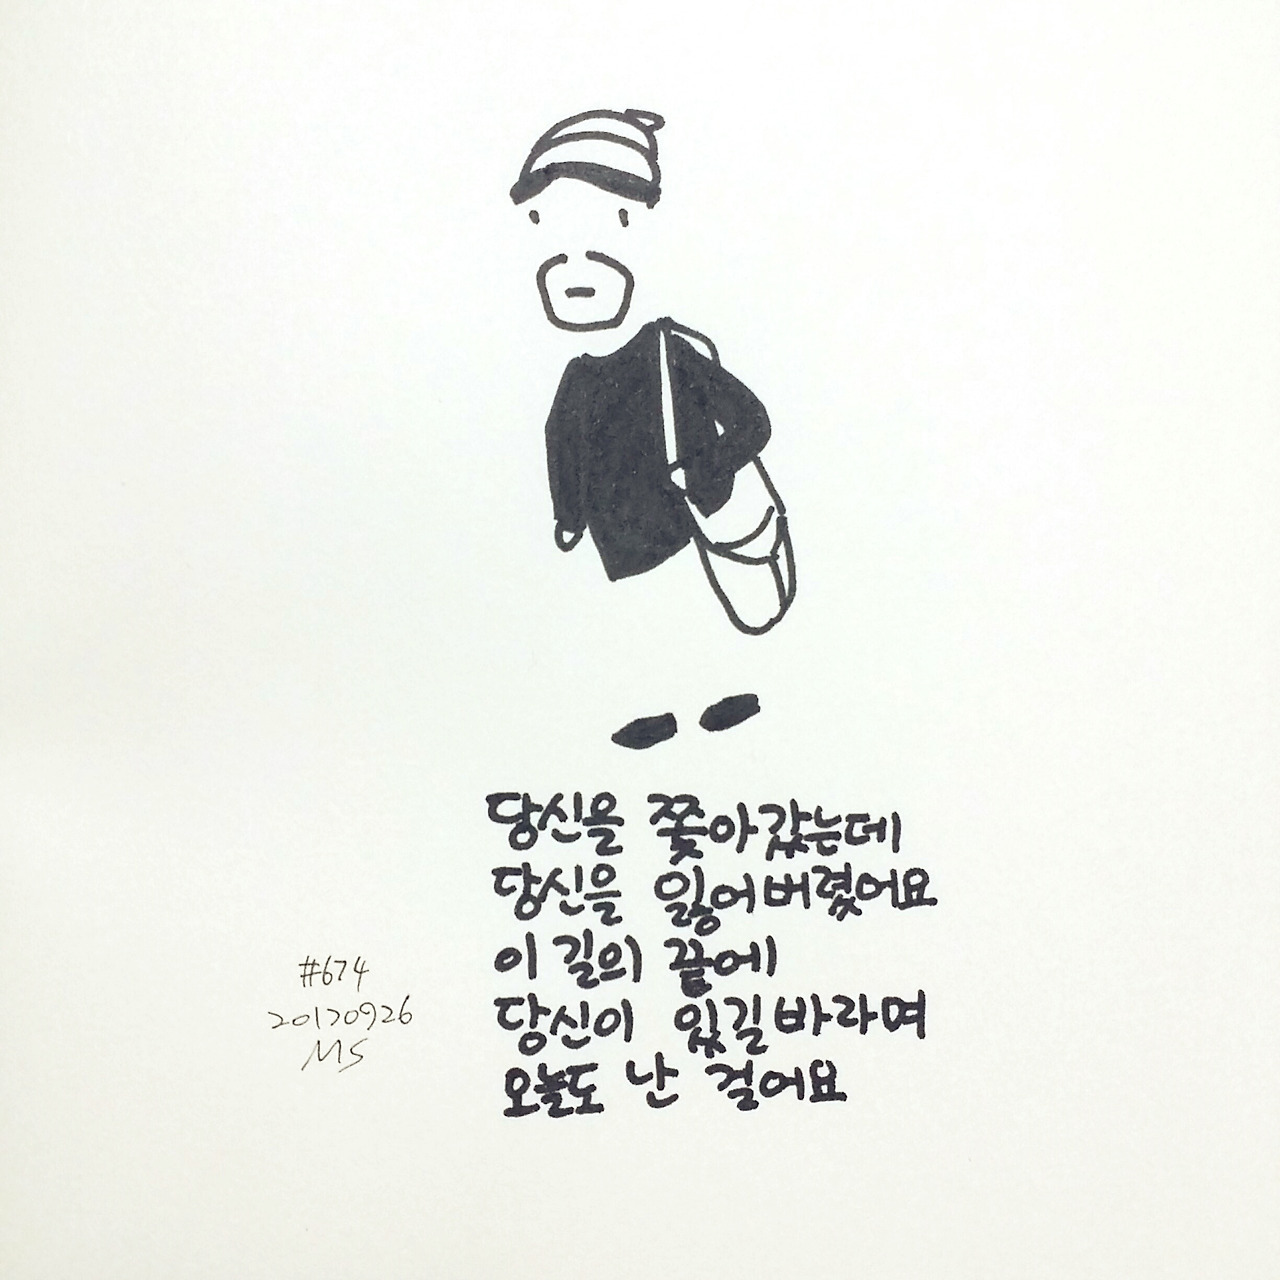 당신을 쫓아갔는데
당신을 잃어버렸어요
이 길의 끝에
당신이 있길 바라며
오늘도 난 걸어요
#674
20170926
MS